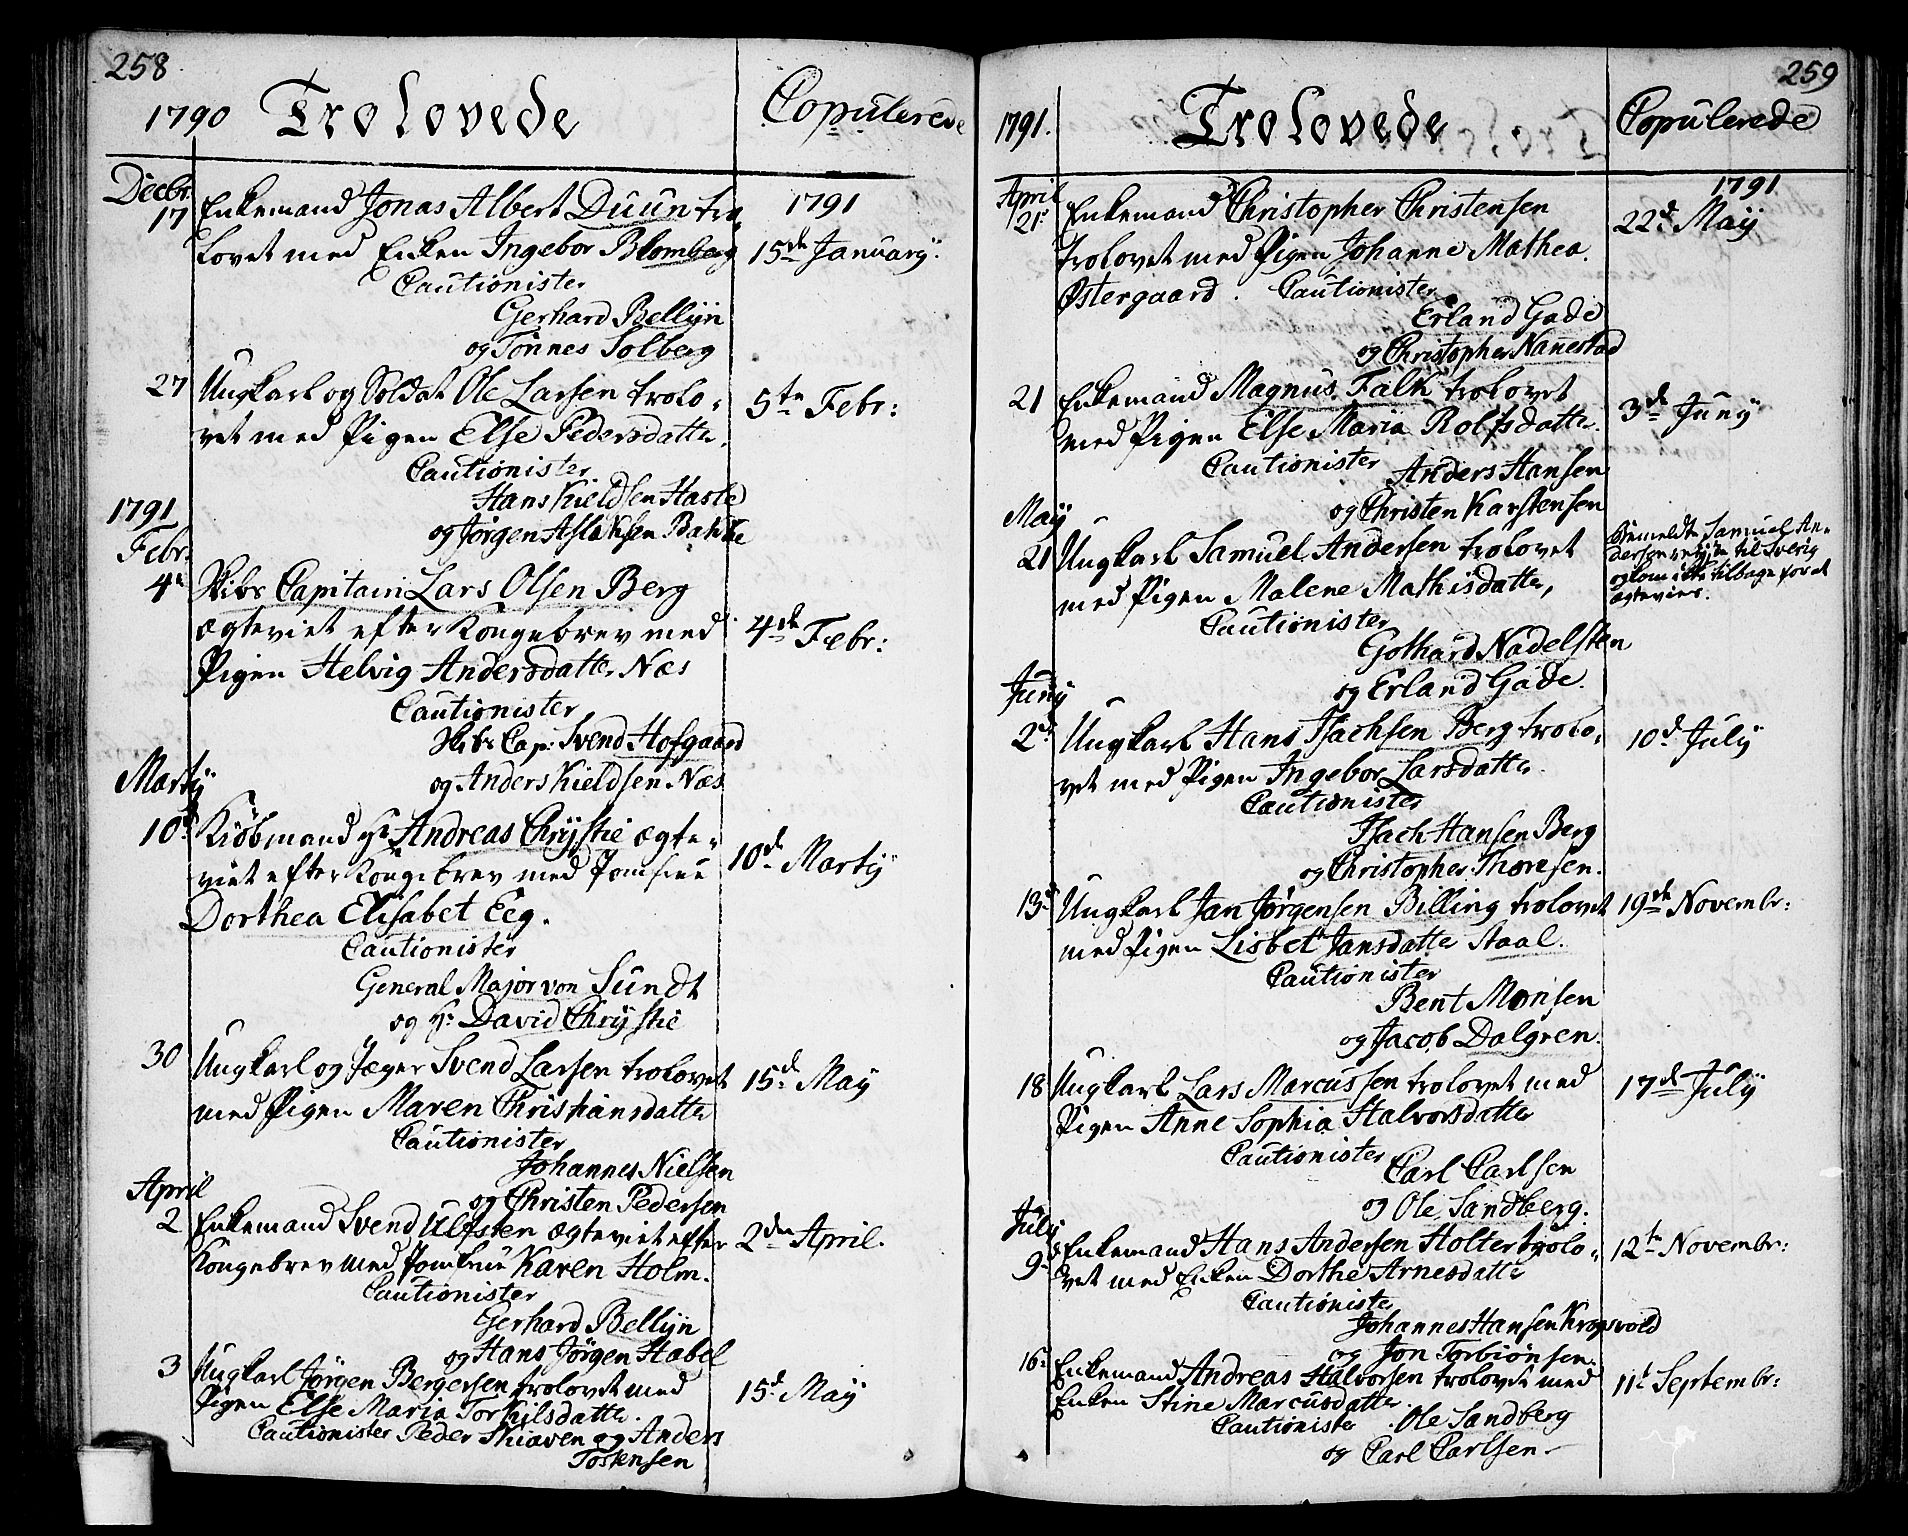 258
1790 Trolovede Copulerede
Decbr.
17 Enkemand Jonas Albert Duun tro-
lovet med Enken Ingebor Blomberg
1791
15de January.
Cautionister
Gerhard Bellyn
og Tönnes Solberg
27 Ungkarl og Soldat Ole Larsen trolo-
vet med Pigen Else Pedersdatter.
5te Febr:
Cautionister
Hans Kieldsen Haste
og Jørgen Aslaksen Bakke
1791
Febr.
4de Skibs Capitain Lars Olsen Berg
ægteviet efter Kongebrev med
Pigen Helvig Andersdatter Næs
4de Febr:
Cautionister
Skibs Cap: Svend Hofgaard
og Anders Kieldsen Næs
Marty
10de Kiöbmand Hr Andreas Chrystie ægte-
viet efter Kongebrev med Jomfrue
Dorthea Elisabet Eeg.
10de Marty
Cautionister
General Major von Sundt
og Hr: David Chrystie
30 Ungkarl og Jæger Svend Larsen trolovet
med Pigen Maren Christiansdatter
15de May
Cautionister
Johannes Nielsen
og Christen Pedersen
April
2 Enkemand Svend Ulfsten ægteviet efter
Kongebrev med Jomfrue Karen Holm.
2den April.
Cautionister
Gerhard Bellyn
og Hans Jörgen Stabel
3 Ungkarl Jörgen Bergersen trolovet med
Pigen Else Maria Torkilsdatter.
15de May
Cautionister Peder Skiaven og Anders
Torkensen
259
1791. Trolovede Copulerede
April
21: Enkemand Christopher Christensen
trolovet med Pigen Johanne Mathea
Østergaard. Cautionister
1791
22de May
Erland Gade
og Christopher Nannestad
21 Enkemand Magnus Falk trolovet
med Pigen Else Maria Rolfsdatter.
3de Juny
Cautionister Anders Hansen
og Christen Karstensen
May
21 Ungkarl Samuel Andersen trolovet
med Pigen Malene Mathisdatter,
Bemeldte Samuel An-
dersen reyste til Sverig
og kom ikke tilbage for at
ægtevies.
Cautionister
Gothard Nadelsten
og Erland Gade.
Juny
2de Ungkarl Hans Isachsen Berg trolo-
vet med Pigen Ingebor Larsdatter.
10de July
Cautionister
Isach Hansen Berg
og Christopher Thoresen.
13de Ungkarl Jan Jørgensen Billing trolovet
med Pigen Lisbet Jansdatter Staal.
19de Novembr:
Cautionister
Bent Monsen
og Jacob Dalgren.
18 Ungkarl Lars Marcussen trolovet med
Pigen Anne Sophia Halvorsdatter
17de July
Cautionister
Carl Carlsen
og Ole Sandberg.
July
9de Enkemand Hans Andersen Holter trolo-
vet med Enken Dorthe Arnesdatter
12te Novembr:
Cautionister
Johannes Hansen Krogsvold
og Jon Torbiönsen.
16: Enkemand Andreas Halvorsen trolovet med
Enken Stine Marcusdatter.
11te Septembr:
Cautionister Ole Sandberg
og Carl Carlsen